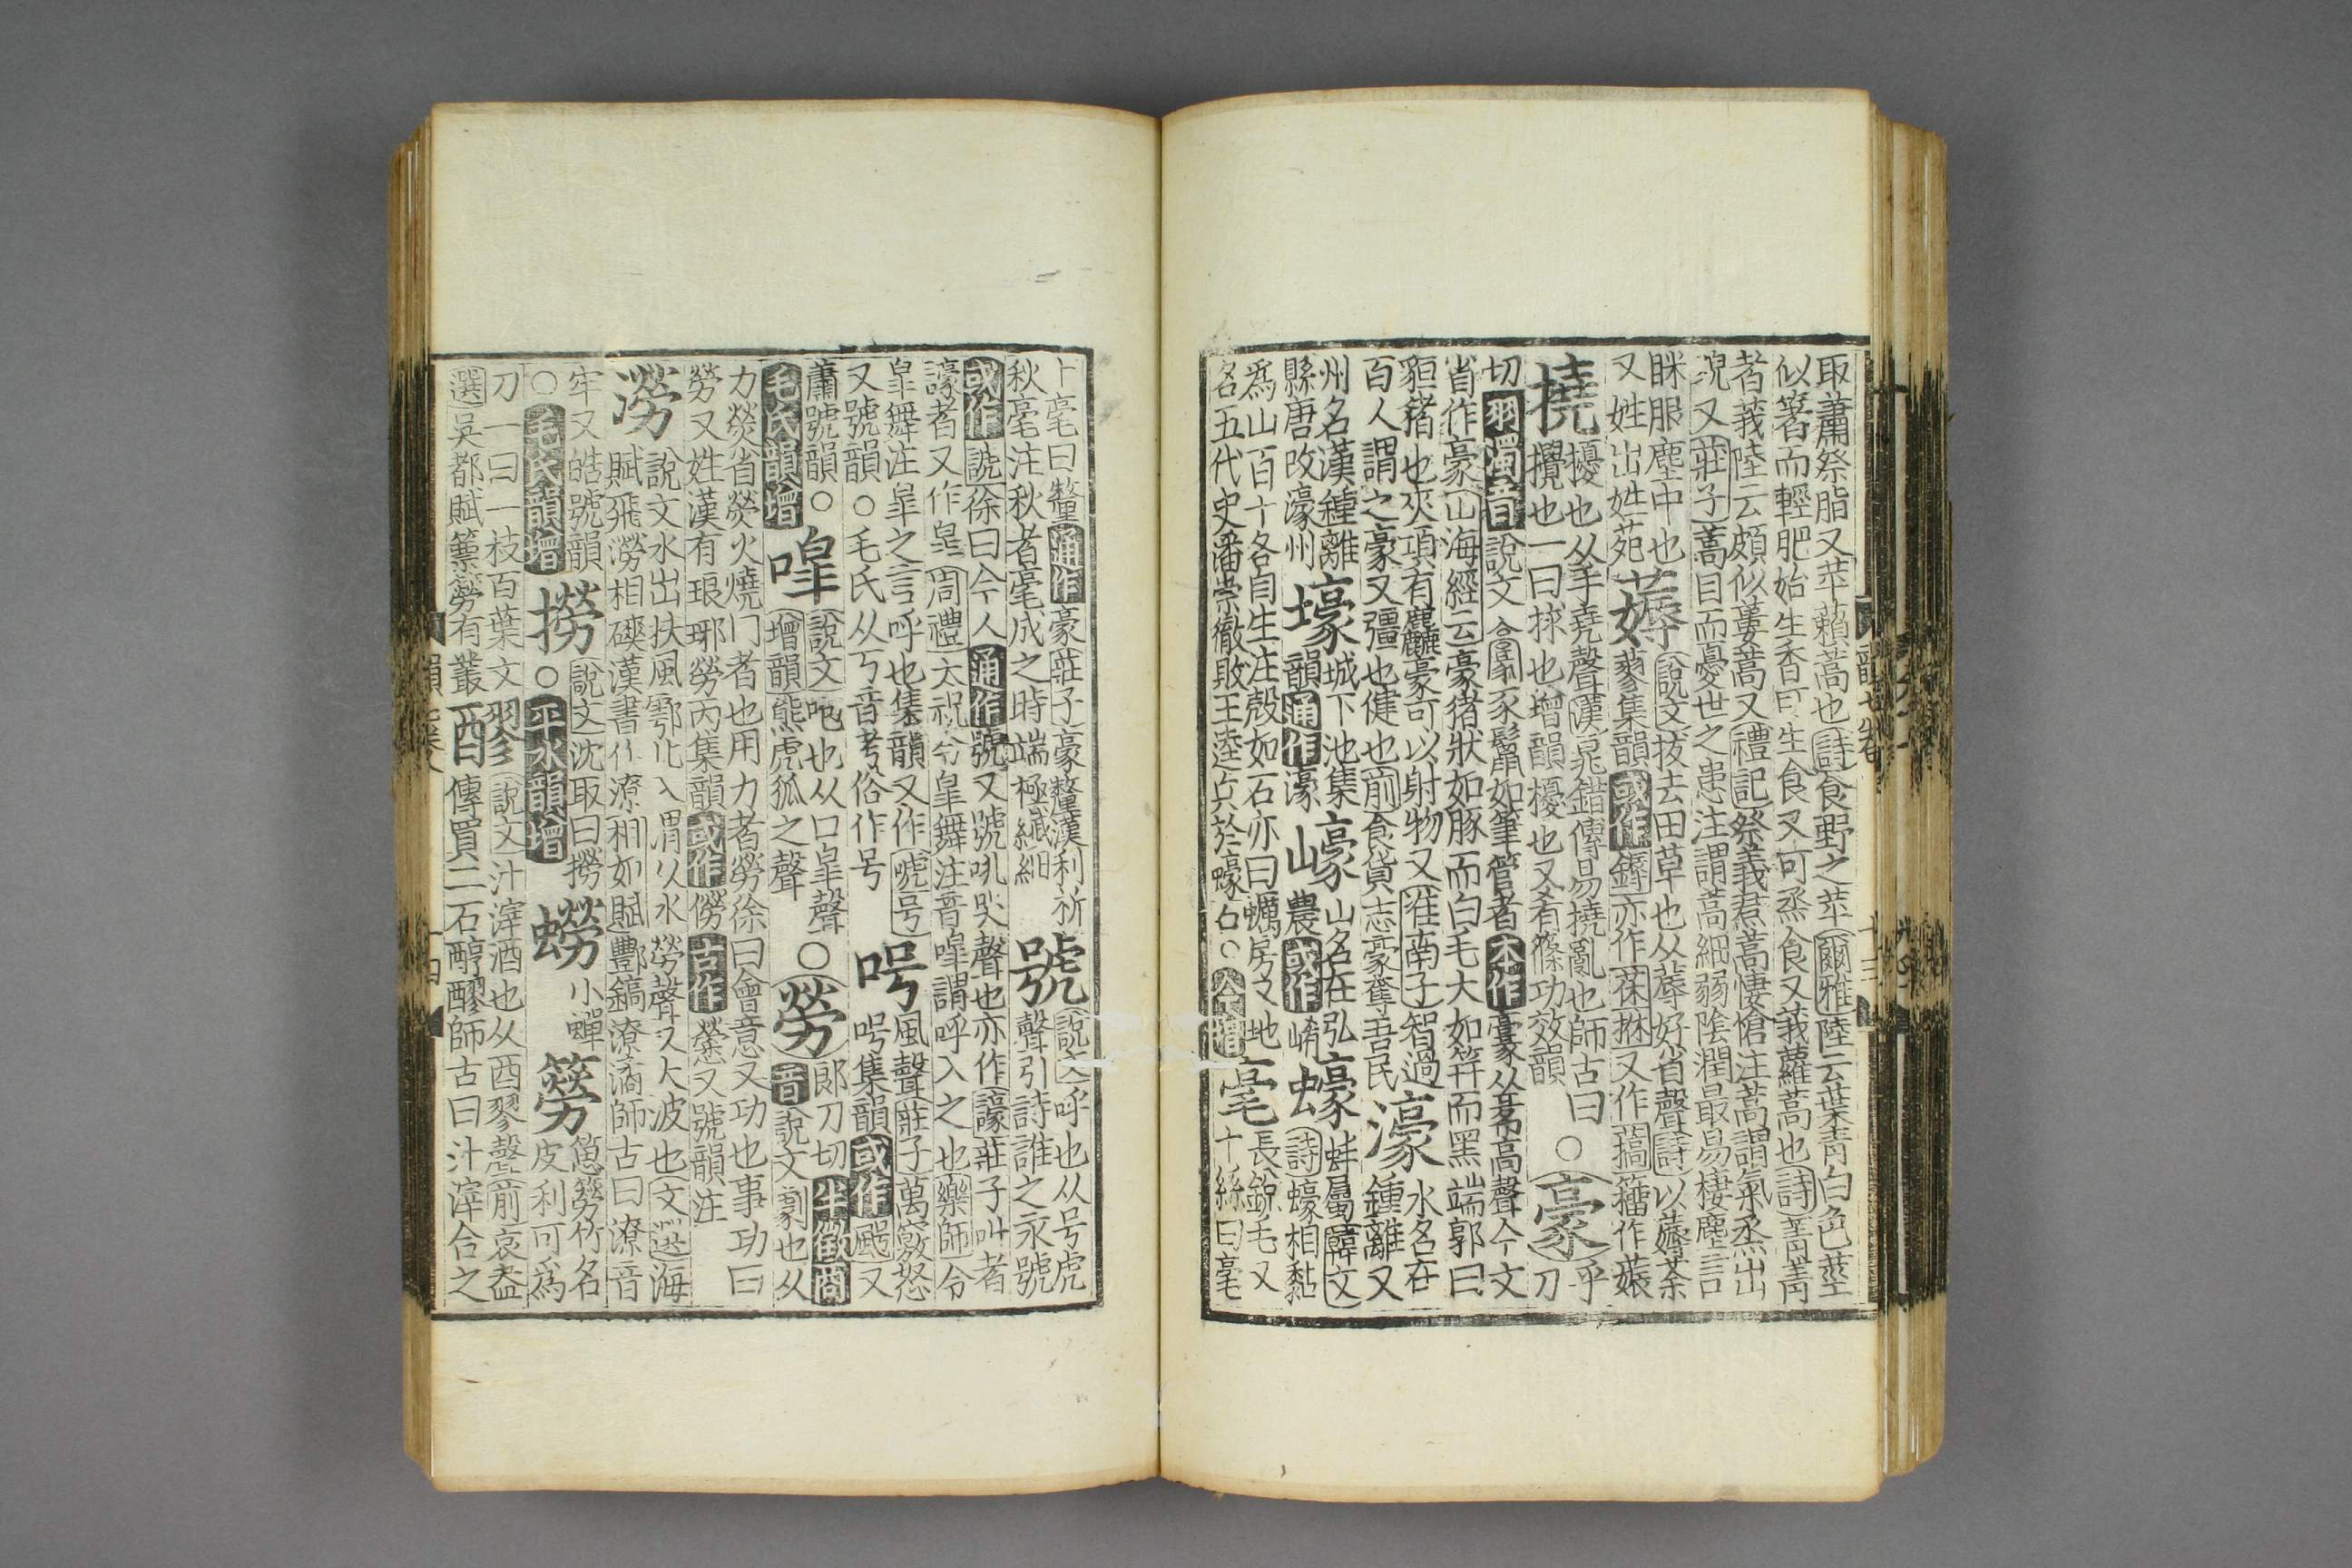 取蕭祭脂又苹藾蒿也詩食野之苹爾雅陸云葉青白色莖
似箸而輕肥始生香可生食又可烝食又莪蘿蒿也詩菁菁
者莪陸云頗似蔞蒿又禮記祭義焄蒿悽愴注蒿謂氣烝出
皃又莊子蒿目而憂世之患注謂蒿細弱陰潤最易棲塵言
眯眼塵中也
又姓出姓苑
薅
說文拔去田草也从蓐好省聲詩以薅荼
蓼集韻或作鎒亦作茠㧅又作𦾷𥴧作䕼
撓
擾也从手堯聲漢鼂錯傳易撓亂也師古曰
攪也一曰捄也增韻擾也又肴篠巧效韻
○豪
乎刀
切羽濁音說文合豪豕鬣如筆管者本作豪从㣇高聲今文
省作豪山海經云豪猪狀如豚而白毛大如笄而黑端郭曰
貆猪也夾項有麤豪可以射物又淮南子智過
百人謂之豪又彊也健也前食貨志豪奪吾民
濠
水名在
鍾離又
州名漢鍾離
縣唐改濠州
壕
城下池集
韻通作濠
嶩
山名在弘
農或作崤
蠔
蚌屬韓文
詩蠔相黏
爲山百十各自生注殼如石亦曰蠣房又地
名五代史潘崇徹敗王逵兵於蠔石○今增
毫
長銳毛又
十絲曰毫
十毫曰氂通作豪莊子豪氂漢利祈
秋毫注秋者毫成之時端極纖細
號
說文呼也从号虎
聲引詩誰之永號
或作諕徐曰今人通作號又號吼哭聲也亦作譹莊子叫者
譹者又作皐周禮大祝令皐舞注音嘷謂呼入之也樂師令
皐舞注皐之言呼也集韻又作唬号
又號韻○毛氏从丂音考俗作号
呺
風聲莊子萬竅怒
呺集韻或作颵又
蕭號韻○
毛氏韻增
嘷
說文咆也从口皐聲
增韻熊虎狐之聲
○勞
郎刀切半徵商
音說文劇也从
力熒省熒火燒門者也用力者勞徐曰會意又功也事功曰
勞又姓漢有琅琊勞丙集韻或作僗古作㷀又號韻注
澇
說文水出扶風鄠北入渭从水勞聲又大波也文選海
賦飛澇相磢漢書作潦相如賦酆鎬潦潏師古曰潦音
牢又皓號韻
○毛氏韻增
撈
說文沈取曰撈
○平水韻增
蟧
小蟬
簩
䈡簩竹名
皮利可爲
刀一曰一枝百葉文
選吳都賦篻簩有叢
醪
說文汁滓酒也从酉翏聲前袁盎
傳買二石醇醪師古曰汁滓合之